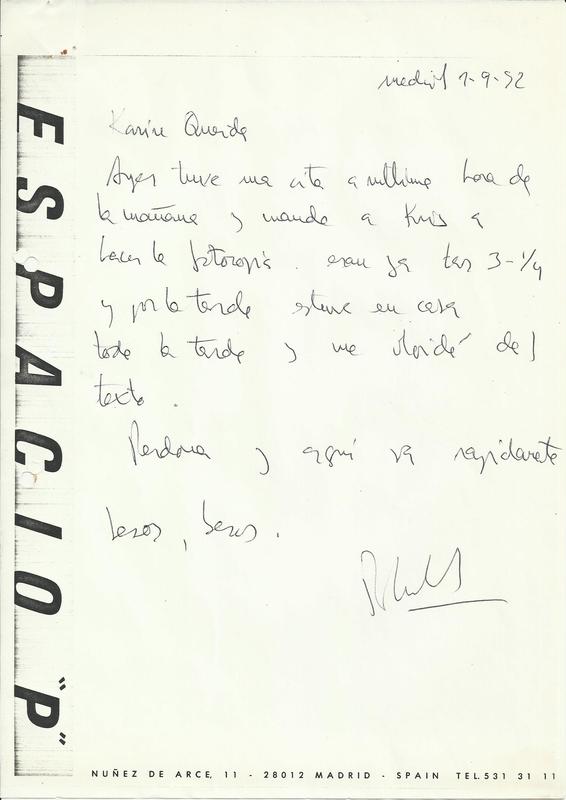 ESPACIO "P"
Madrid 1-9-92
Karin Querida
Ayer tuve una cita a ultima hora de
la mañana y mande a Kris a
hacer la fotocopia. eran ya las 3-1/4
y por la tarde estuve en casa
toda la tarde y me olvidé del
texto.
Perdona y aqui va rapidamente
besos, besos.
NUÑEZ DE ARCE, 11 - 28012 MADRID - SPAIN TEL. 531 31 11